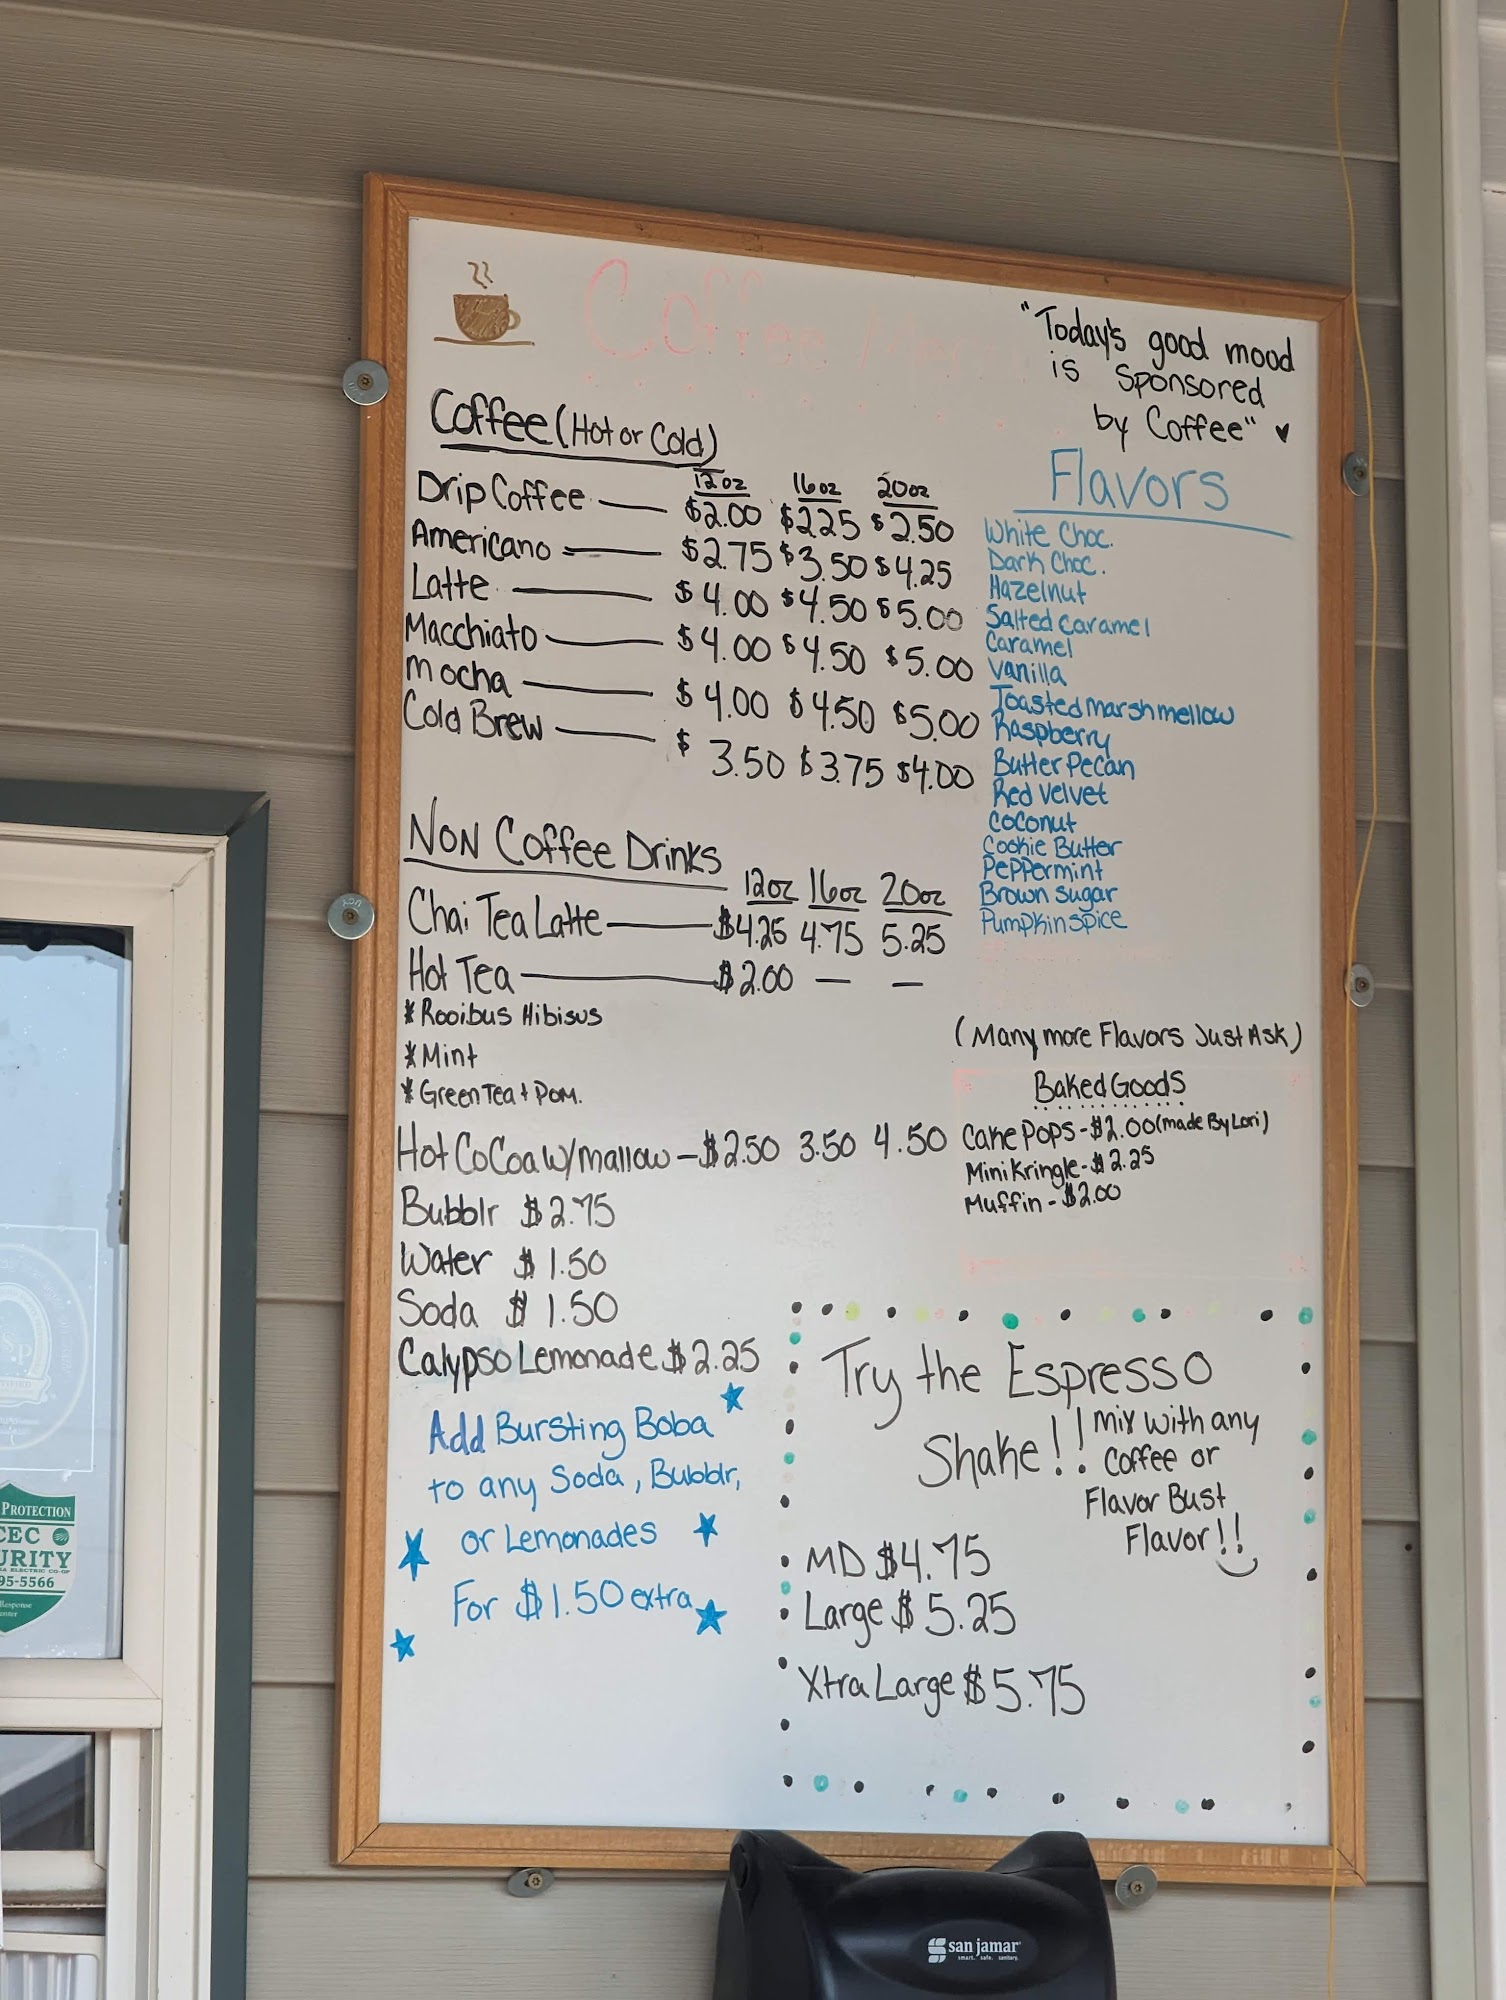 Coffee Menu
"Today's good mood
is Sponsored
by Coffee" ♥
Coffee (Hot or Cold)
12oz 16oz 20oz
Drip Coffee — $2.00 $2.25 $2.50
Americano — $2.75 $3.50 $4.25
Latte — $4.00 $4.50 $5.00
Macchiato — $4.00 $4.50 $5.00
Mocha — $4.00 $4.50 $5.00
Cold Brew — $3.50 $3.75 $4.00
Flavors
White Choc.
Dark Choc.
Hazelnut
Salted Caramel
Caramel
Vanilla
Toasted marshmellow
Raspberry
Butter Pecan
Red Velvet
Coconut
Cookie Butter
Peppermint
Brown Sugar
Pumpkin Spice
(Many more Flavors Just Ask)
Non Coffee Drinks
12oz 16oz 20oz
Chai Tea Latte — $4.25 4.75 5.25
Hot Tea — $2.00 — —
*Rooibus Hibisus
*Mint
*Green Tea + Pom.
Hot CoCoa w/mallow - $2.50 3.50 4.50
Bubblr $2.75
Water $1.50
Soda $1.50
Calypso Lemonade $2.25
Add Bursting Boba
to any Soda, Bubblr,
or Lemonades
For $1.50 extra
Baked Goods
Cake Pops - $2.00 (made By Lori)
Mini Kringle - $2.25
Muffin - $2.00
Try the Espresso
Shake!!
mix with any
Coffee or
Flavor Bust
Flavor!!
MD $4.75
Large $5.25
Xtra Large $5.75
PROTECTION
CEC
URITY
95-5566
Response
san jamar
smart. safe. sanitary.